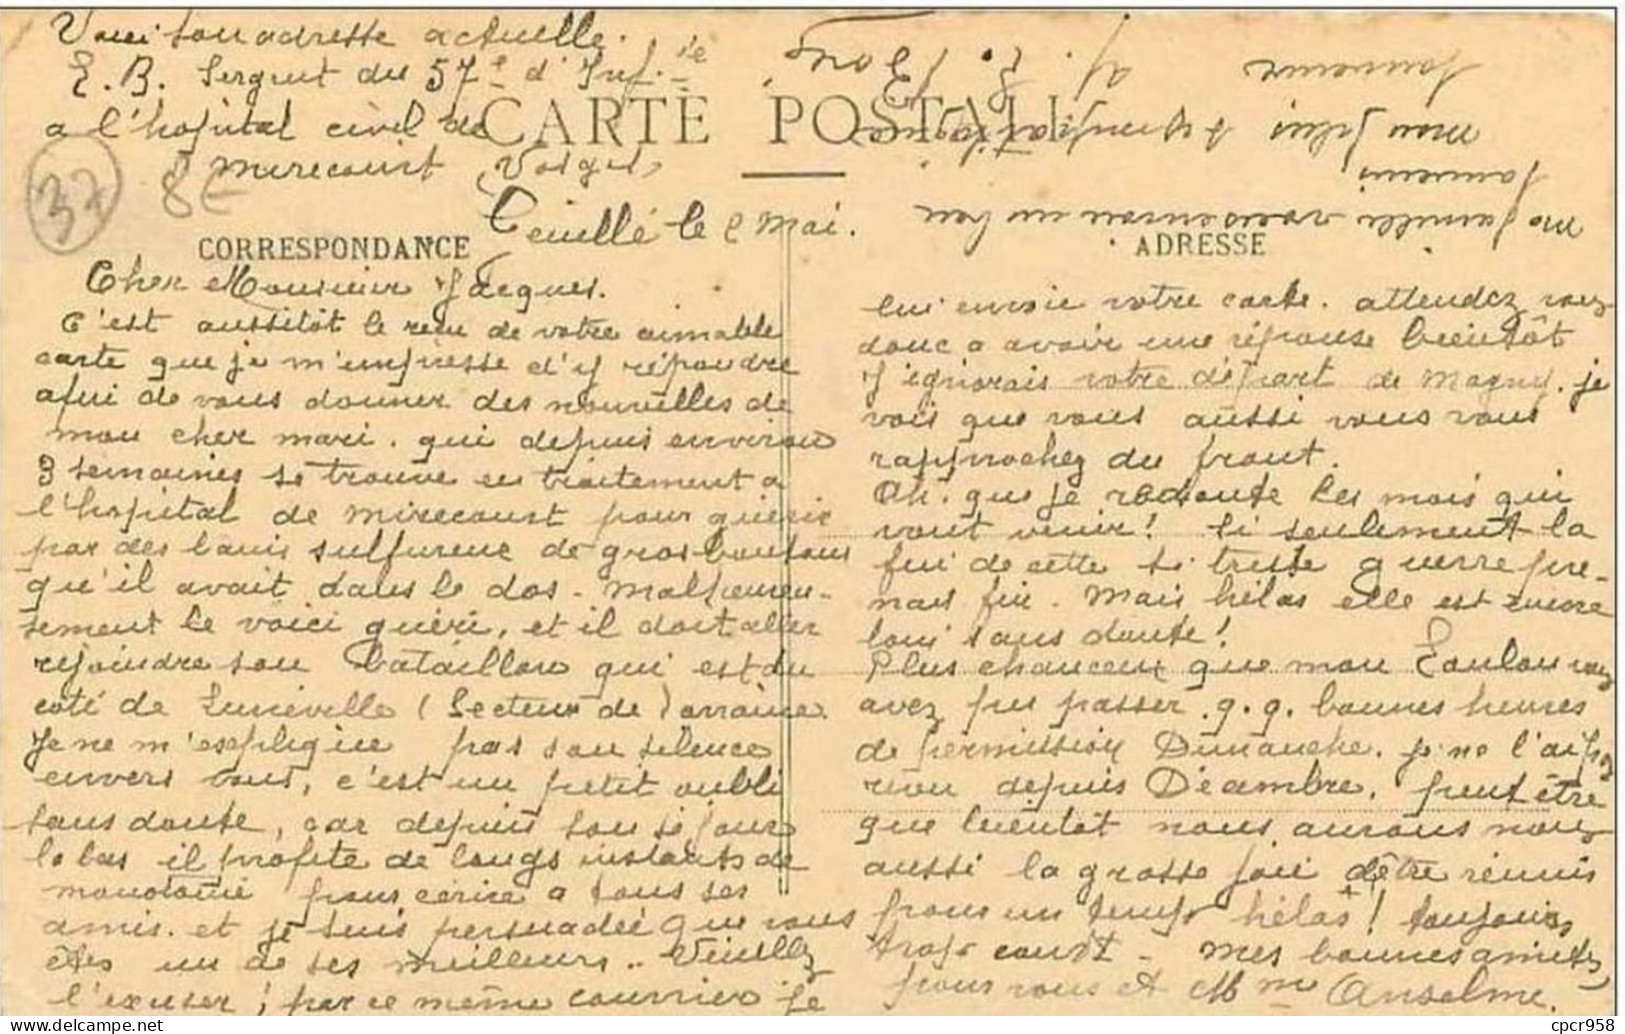 Voici son adresse actuelle.
E. B. Sergent du 57e d'Inf.ie
a l'hopital civil de
Mirecourt (Vosges)
CARTE POSTALE
37
8E
Neuillé le 2 Mai.
CORRESPONDANCE
ADRESSE
Cher Monsieur Jacques.
C'est aussitôt le reçu de votre aimable
carte que je m'empresse d'y répondre
afin de vous donner des nouvelles de
mon cher mari. qui depuis environ
3 semaines se trouve en traitement a
l'hopital de Mirecourt pour guérir
par des bains sulfureux de gros boutons
qu'il avait dans le dos - Malheureu-
sement le voici guéri, et il doit aller
rejoindre son bataillon qui est du
coté de Lunéville (Secteur de Lorraine
Je ne m'explique pas son silence
envers vous, c'est un petit oubli
sans doute, car depuis son séjour
la bas il profite de longs instants de
monotonie pour écrire a tous ses
amis. et je suis persuadée que vous
êtes un de ses meilleurs.. Veuillez
l'excuser ; par ce même courrier je
lui envoie votre carte. attendez vous
donc a avoir une réponse bientôt
J'ignorais votre départ de Magny. je
vois que vous aussi vous vous
rapprochez du front.
Oh. que je redoute les mois qui
vont venir! Si seulement la
fin de cette si triste guerre pre-
nait fin. Mais hélas elle est encore
loin sans doute!
Plus chanceux que mon Loulou vous
avez pu passer q.q. bonnes heures
de permission Dimanche. je ne l'ai pas
revu depuis Décembre. peut être
que bientôt nous aurons nous
aussi la grosse joie d'être réunis
pour un temps hélas! toujours
trop court - Mes bonnes amitiés
pour vous et Mme Anselme.
ma famille vous envoie un bon
souvenir
mon plus sympathique
souvenir
cpcr958